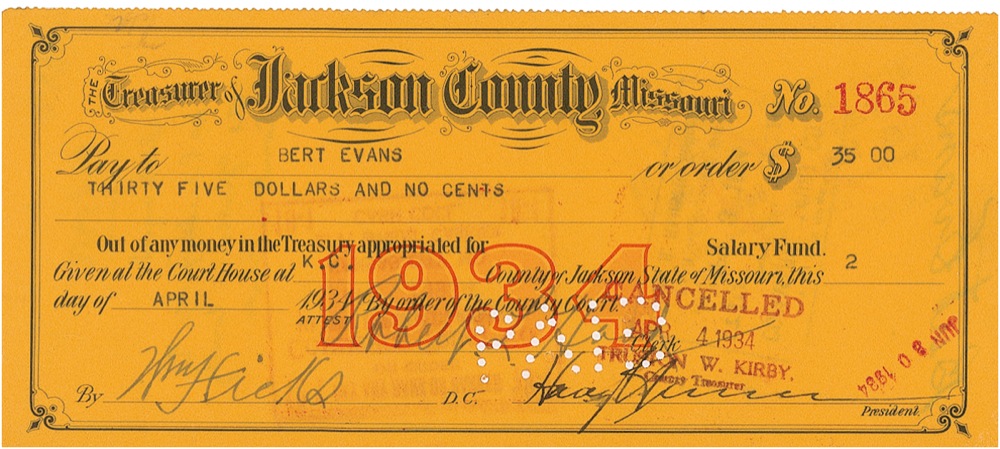 THE Treasurer of Jackson County Missouri No. 1865
Pay to BERT EVANS or order $ 35 00
THIRTY FIVE DOLLARS AND NO CENTS
Out of any money in the Treasury appropriated for Salary Fund.
Given at the Court House at K.C. County of Jackson State of Missouri, this 2
day of APRIL 1934 By order of the County Court.
1934
ATTEST
Clerk
CANCELLED
APR 4 1934
TRUSTON W. KIRBY,
County Treasurer
JUN 30 1934
PAID
By Wm J Hicks D.C. President.